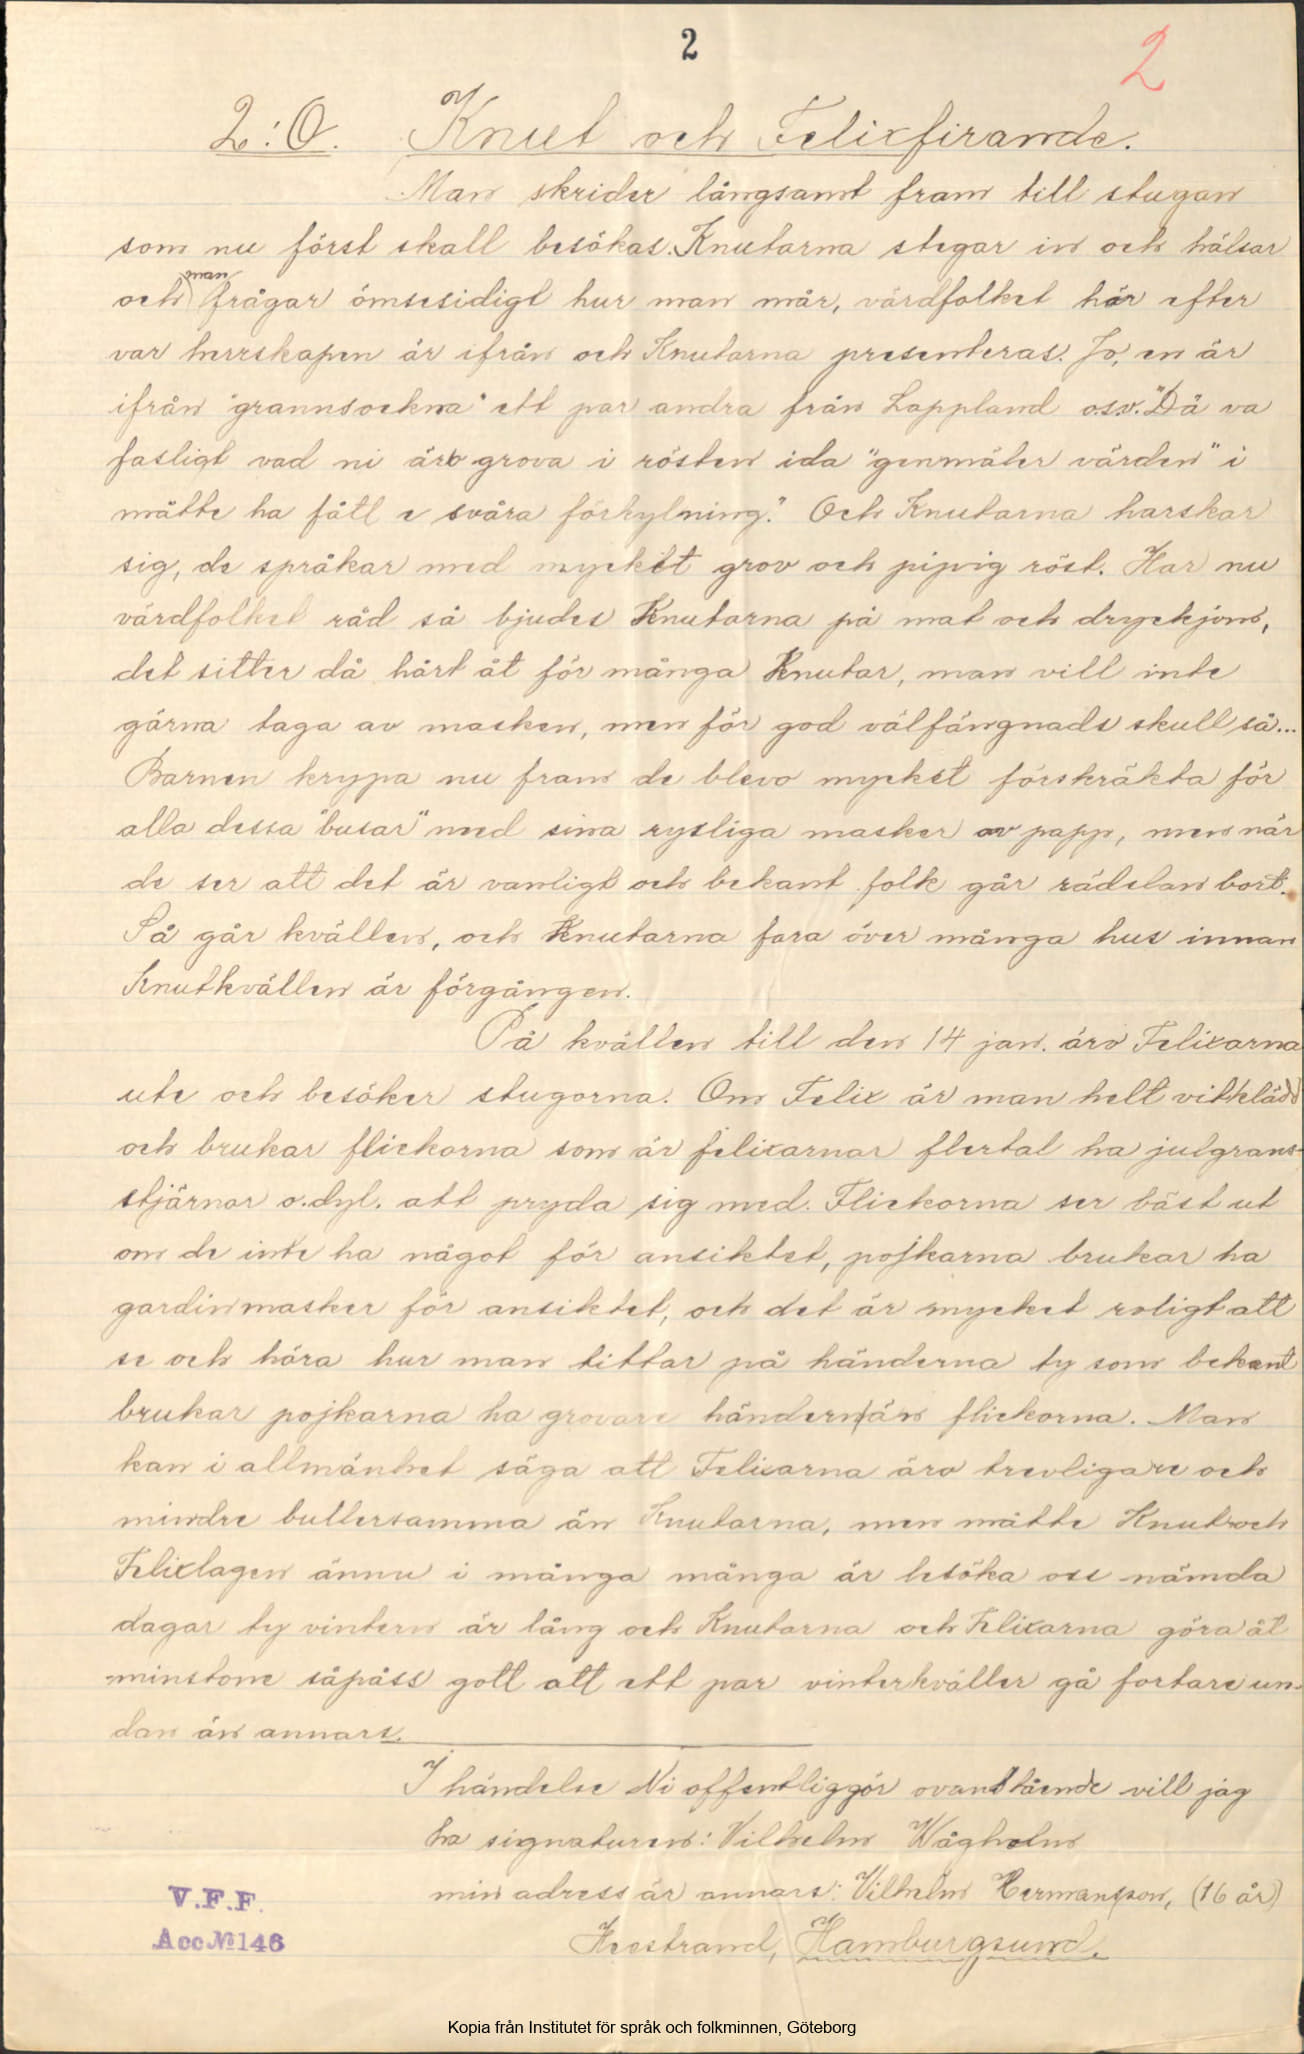 2
2
2:O. Knut och Felixfirande.
Man skrider långsamt fram till stugan
som nu först skall besökas. Knutarna stegar in och hälsar
man
och frågar ömsesidigt hur man mår, värdfolket hör efter
var herrskapen är ifrån och Knutarna presenteras. Jo, en är
ifrån "grannsockna" ett par andra från Lappland o.s.v. "Dä va
fasligt vad ni äro grova i rösten ida "genmäler värden" i
måtte ha fått e svåra förkylning." Och Knutarna harskar
sig, de språkar med mycket grov och pipig röst. Har nu
värdfolket råd så bjudes Knutarna på mat och dryckjom,
det sitter då hårt åt för många Knutar, man vill inte
gärna taga av masken, men för god välfångnads skull så...
Barnen krypa nu fram de blevo mycket förskräkta för
alla dessa "busar" med sina rysliga masker av papp, men när
de ser att det är vanligt och bekant folk går rädslan bort.
Så går kvällen, och Knutarna fara över många hus innan
Knutkvällen är förgången.
På kvällen till den 14 jan. äro Felixarna
ute och besöker stugorna. Om Felix är man helt vitklädd
och brukar flickorna som är felixarnas flertal ha julgrans-
stjärnor o.dyl. att pryda sig med. Flickorna ser bäst ut
om de inte ha något för ansiktet, pojkarna brukar ha
gardinmasker för ansiktet, och det är mycket roligt att
se och höra hur man tittar på händerna ty som bekant
brukar pojkarna ha grovare händer än flickorna. Man
kan i allmänhet säga att Felixarna äro trevligare och
mindre bullersamma än Knutarna, men måtte Knut och
Felixlagen ännu i många många år besöka oss nämda
dagar ty vintern är lång och Knutarna och Felixarna göra åt
minstone såpass gott att ett par vinterkväller gå fortare un-
dan än annars.
I händelse Ni offentliggör ovanstående vill jag
ha signaturen: Vilhelm Wågholm
min adress är annars: Vilhelm Hermansson, (16 år)
Heestrand, Hamburgsund.
V.F.F.
Acc No 146
Kopia från Institutet för språk och folkminnen, Göteborg